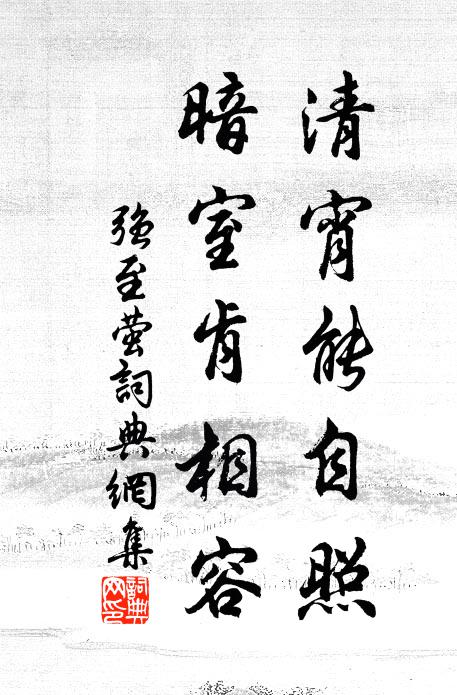 清宵能自照
暗室肯相容
強至萤詞典網集
詞典網印